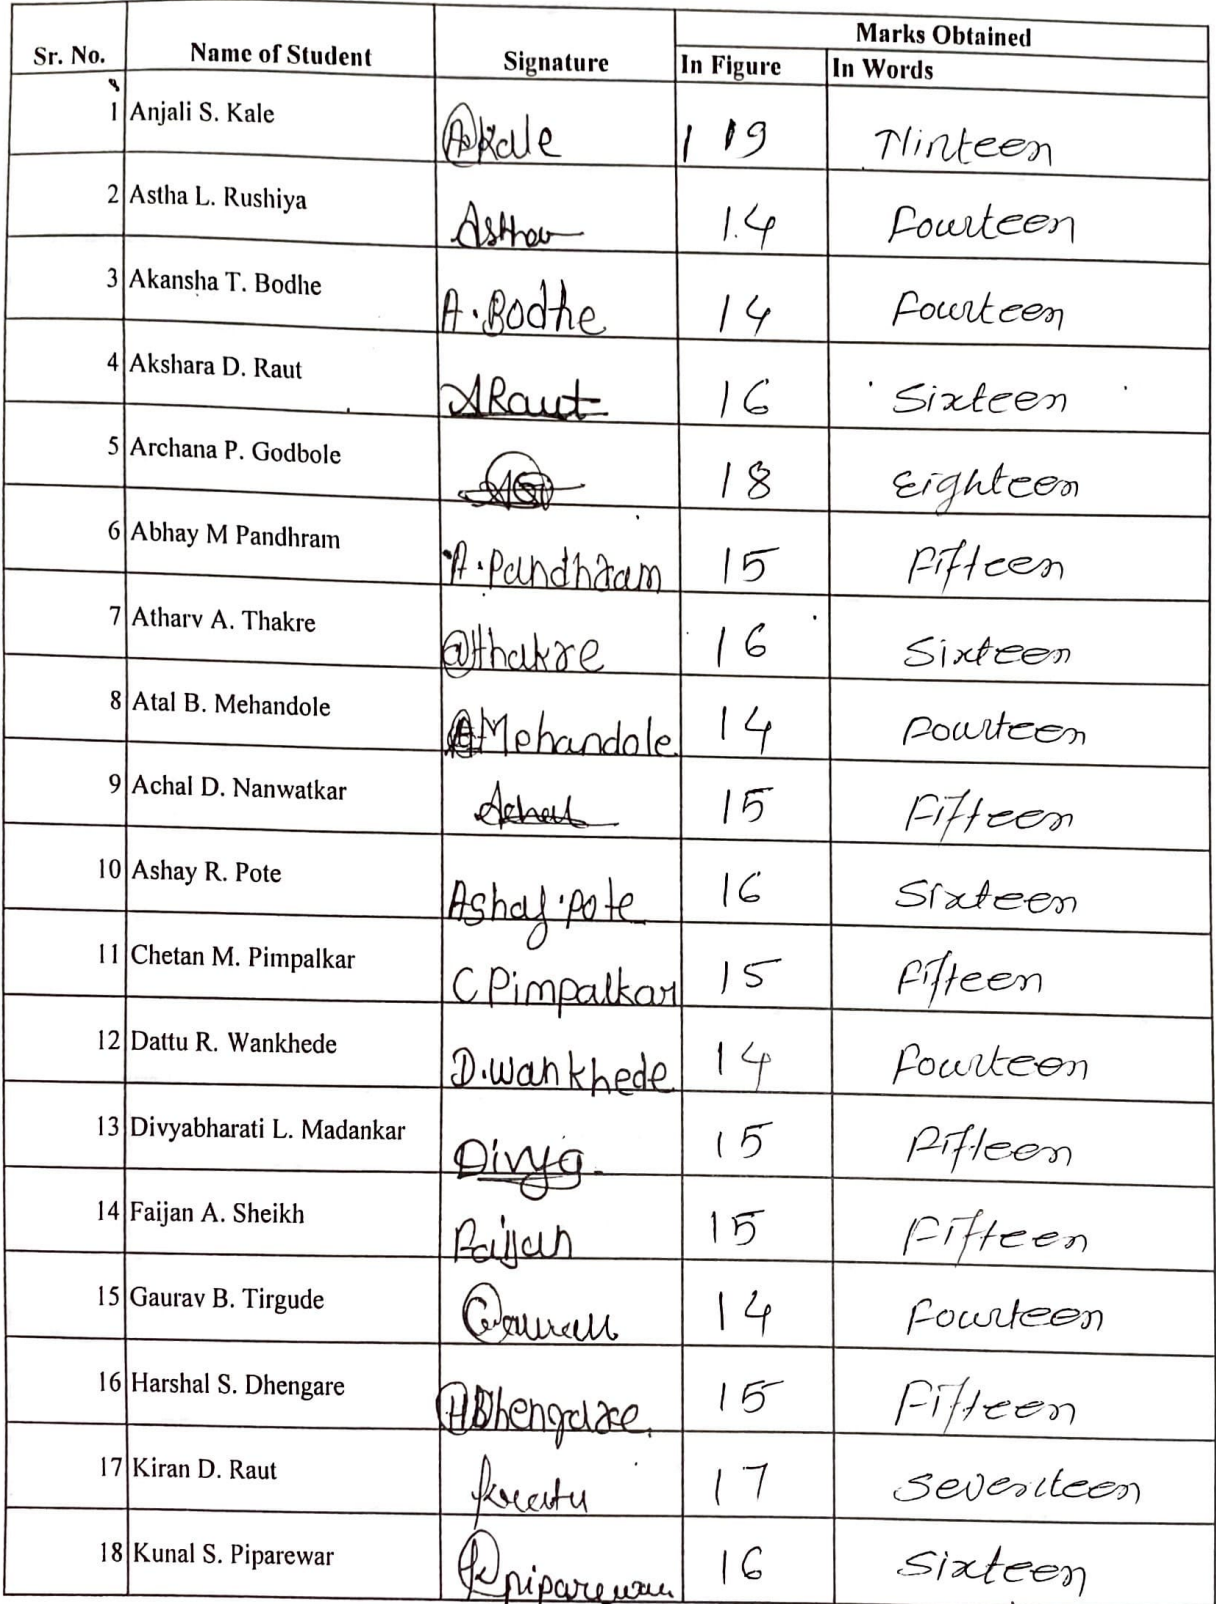 Sr. No. Name of Student Signature Marks Obtained
In Figure In Words
1 Anjali S. Kale AKale 19 Ninteen
2 Astha L. Rushiya Astha 14 Fourteen
3 Akansha T. Bodhe A.Bodhe 14 Fourteen
4 Akshara D. Raut ARaut 16 Sixteen
5 Archana P. Godbole 18 Eighteen
6 Abhay M Pandhram A.Pandhram 15 Fifteen
7 Atharv A. Thakre @thakre 16 Sixteen
8 Atal B. Mehandole Mehandole 14 Fourteen
9 Achal D. Nanwatkar Achal 15 Fifteen
10 Ashay R. Pote Ashay.pote 16 Sixteen
11 Chetan M. Pimpalkar C Pimpalkar 15 Fifteen
12 Dattu R. Wankhede D.wankhede 14 Fourteen
13 Divyabharati L. Madankar Divya 15 Fifteen
14 Faijan A. Sheikh Faijan 15 Fifteen
15 Gaurav B. Tirgude Gaurav 14 Fourteen
16 Harshal S. Dhengare HDhengare. 15 Fifteen
17 Kiran D. Raut 17 Seventeen
18 Kunal S. Piparewar Kpiparewar 16 Sixteen